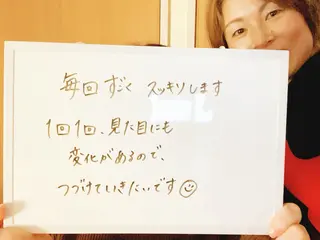 毎回 すごく スッキリします
1回1回、見た目にも
変化があるので、
つづけていきたいです☺